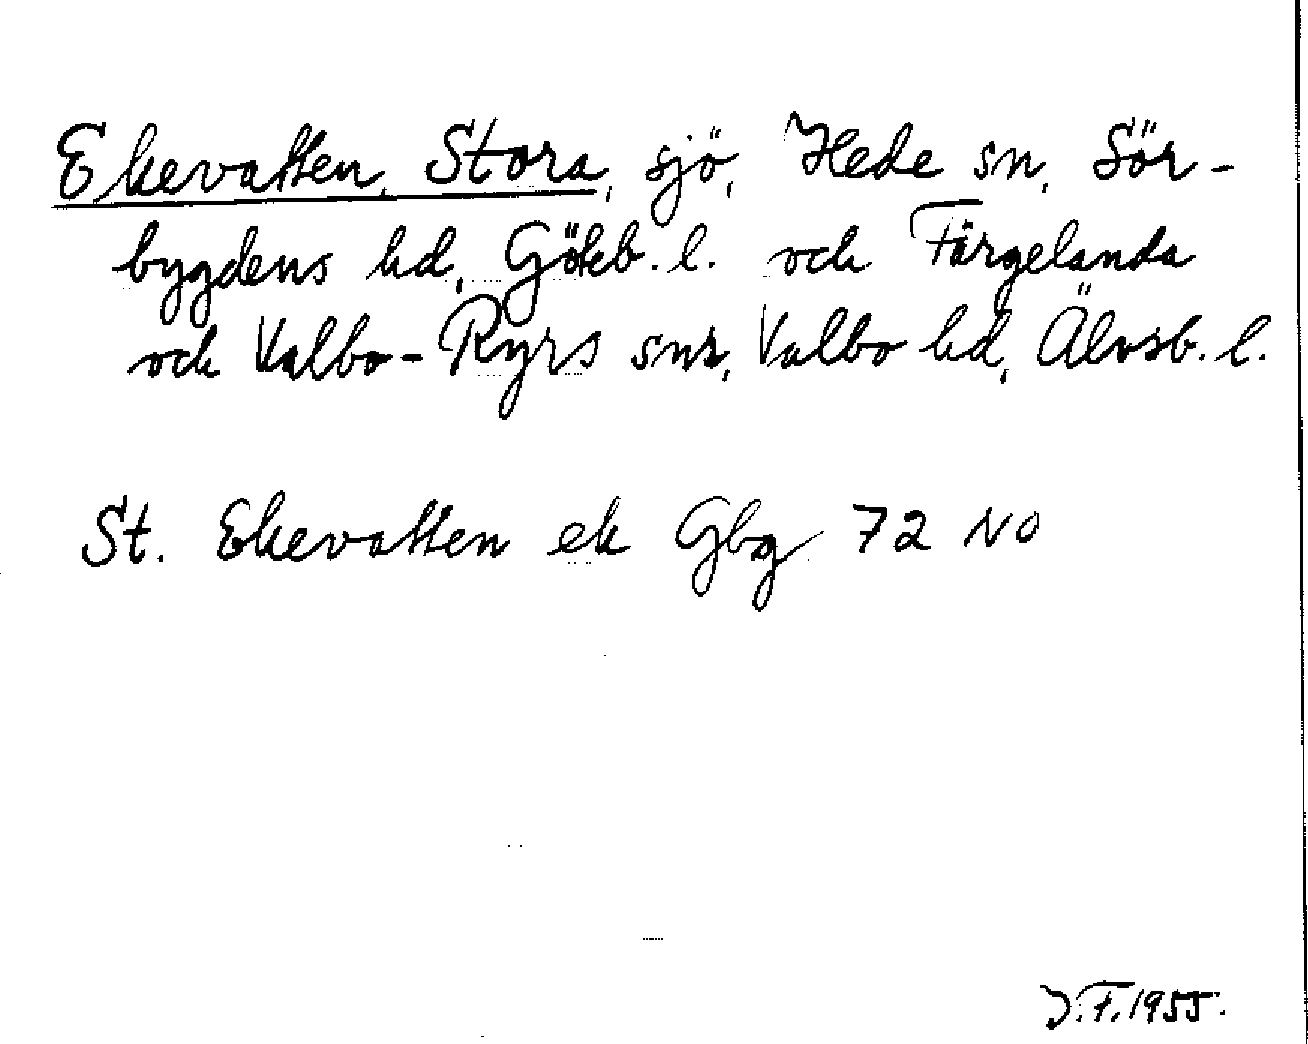 Ekevatten, Stora, sjö, Hede sn, Sör-
bygdens hd, Göteb. l. och Färgelanda
och Valbo-Ryrs snr, Valbo hd, Älvsb. l.
St. Ekevatten ek Gbg 72 NO
J.F. 1955.